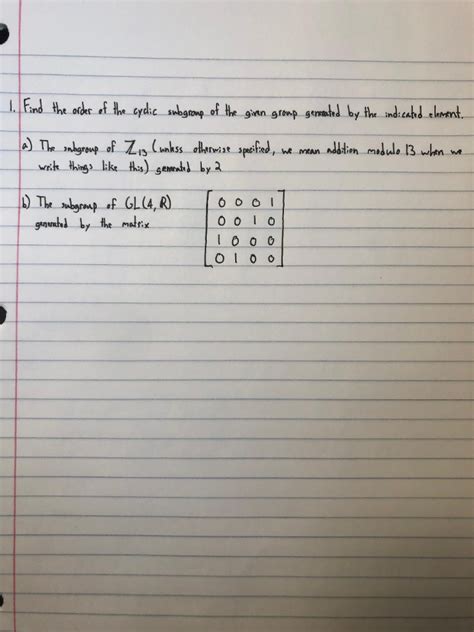 1. Find the order of the cyclic subgroup of the given group generated by the indicated element.
a) The subgroup of ℤ₁₃ (unless otherwise specified, we mean addition modulo 13 when we
write things like this) generated by 2
b) The subgroup of GL(4, ℝ)
generated by the matrix
0 0 0 1
0 0 1 0
1 0 0 0
0 1 0 0